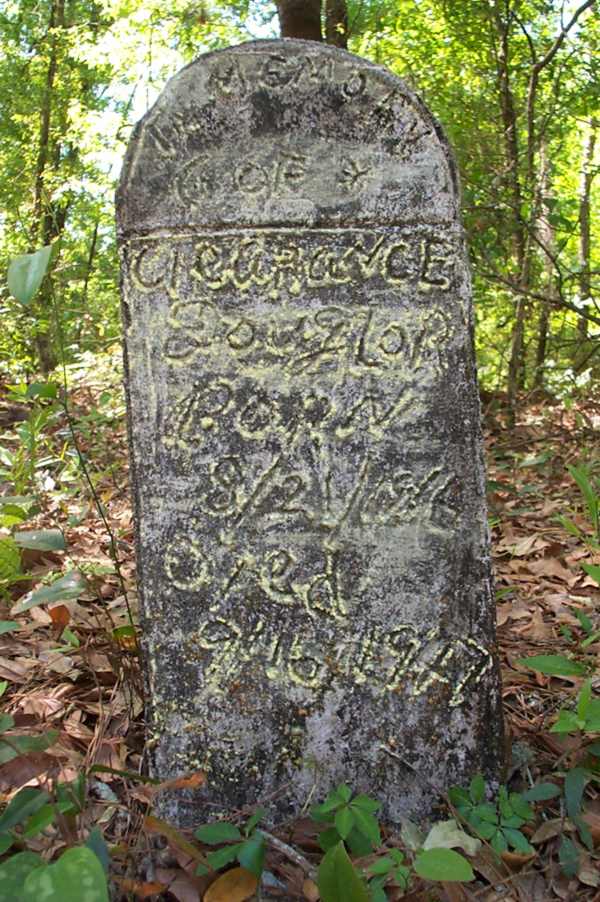 IN MEMORY
* OF *
CleARaNCE
DougloR
BORN
8/21/
Died
9/16/1947